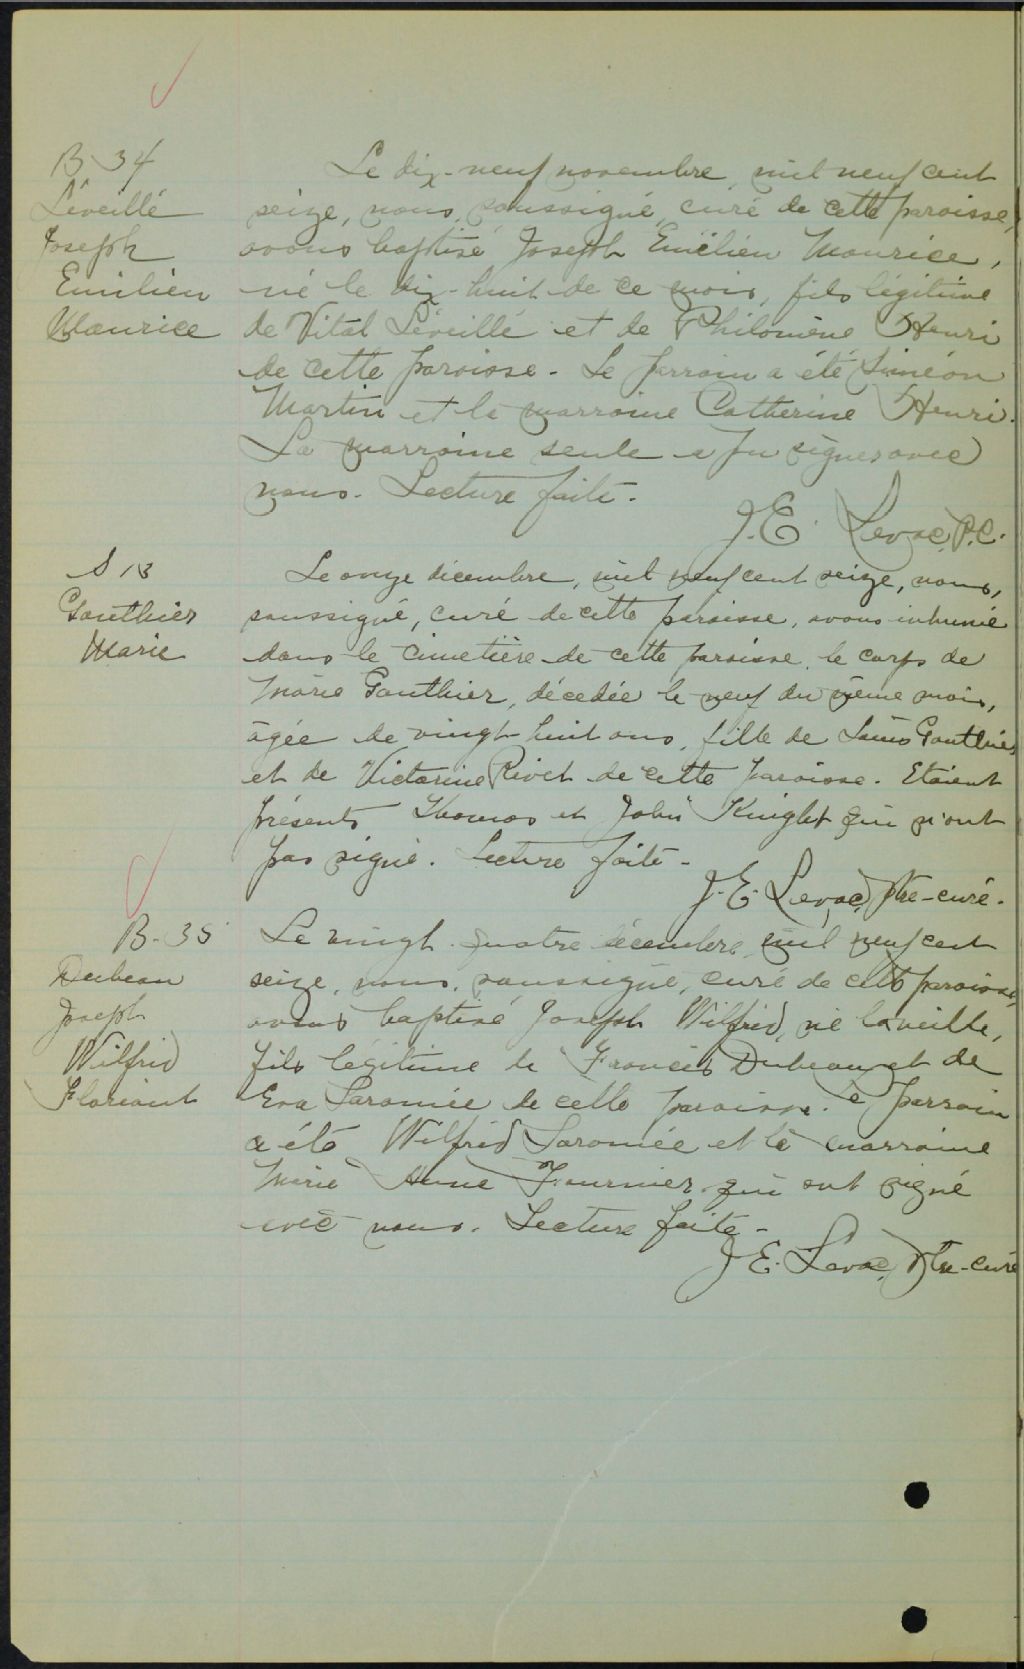 B-34
Léveillé
Joseph
Emilien
Maurice
Le dix-neuf novembre, mil neuf cent
seize, nous, soussigné, curé de cette paroisse,
avons baptisé Joseph Emélien Maurice,
né le dix-huit de ce mois, fils légitime
de Vital Léveillé et de Philomène Henri
de cette paroisse. Le parrain a été Siméon
Martin et la marraine Catherine Henri.
La marraine seule a pu signer avec
nous. Lecture faite.
J.E. Levac, P.C.
S 13
Gauthier
Marie
Le onze décembre, mil neuf cent seize, nous,
soussigné, curé de cette paroisse, avons inhumé
dans le cimetière de cette paroisse, le corps de
Marie Gauthier, décedée le neuf du même mois,
âgée de vingt-huit ans, fille de Louis Gauthier
et de Victorine Rivet de cette paroisse. Etaient
présents Thomas et John Knight qui n'ont
pas signé. Lecture faite -
J.E. Levac, Ptre-curé.
B-35
Dubeau
Joseph
Wilfrid
Floriant
Le vingt-quatre décembre, mil neuf cent
seize, nous, soussigné, curé de cette paroisse,
avons baptisé Joseph Wilfrid, né la veille,
fils légitime de Francis Dubeau et de
Eva Laramée de cette paroisse. Le parrain
a été Wilfrid Laramée et la marraine
Marie Anne Fournier qui ont signé
avec nous. Lecture faite -
J.E. Levac, Ptre-curé